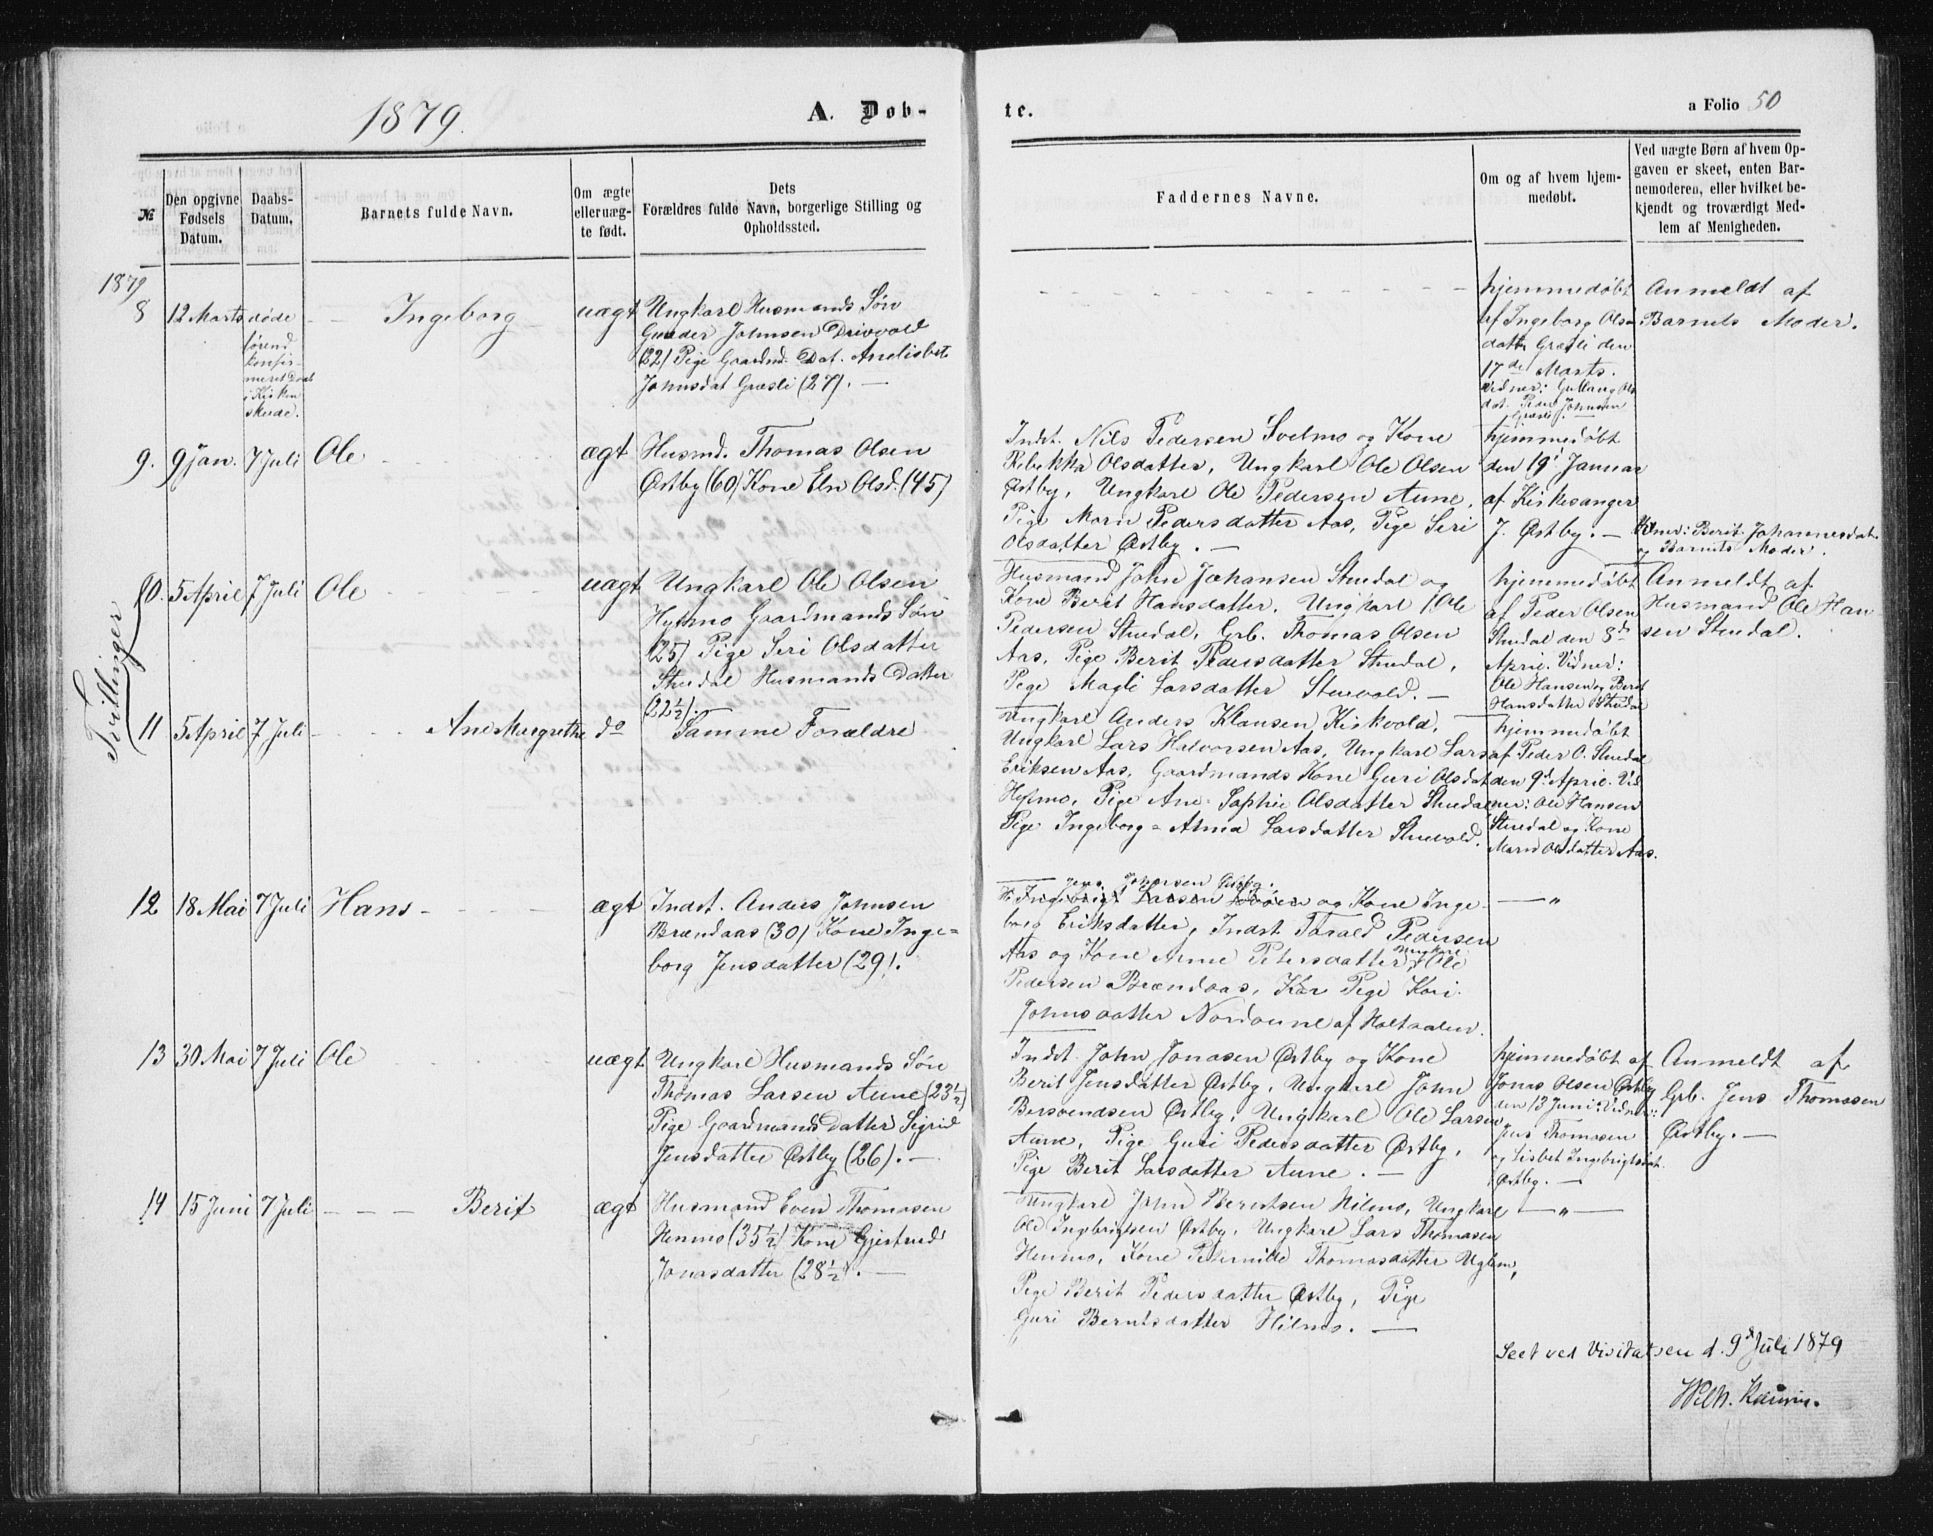 1879.
A. Døb-
te.
a Folio 50
№
Den opgivne
Fødsels
Datum.
Daabs-
Datum.
Barnets fulde Navn.
Om ægte
eller uæg-
te født.
Dets
Forældres fulde Navn, borgerlige Stilling og
Opholdssted.
Faddernes Navne.
Om og af hvem hjem-
medøbt.
Ved uægte Børn af hvem Op-
gaven er skeet, enten Bar-
nemoderen, eller hvilket be-
kjendt og troværdigt Med-
lem af Menigheden.
1879
8
12 Marts
døde
førend
konfir-
meret Daab
i Kirken
skede.
Ingeborg
uægt
Ungkarl Husmands Søn
Gunder Johnsen Drivvold
(22) Pige Gaardmd. Dat. Anelisbet
Johnsdat Græsli (27). —
hjemmedøbt
af Ingeborg Olsen
datter Græsli den
17de Marts.
Vidner: Ols
dat. Peder Johnsen
Græsli. —
Anmeldt af
Barnets Moder.
9.
9 Jan.
7 Juli
Ole
ægt
Husmd. Thomas Olsen
Østby (60) Kone Eln Olsd. (45)
Indst. Nils Pedersen Svelmo og Kone
Rebekka Olsdatter, Ungkarl Ole Olsen
Østby, Ungkarl Ole Pedersen Aune,
Pige Marn Pedersdatter Aas, Pige Seri
Olsdatter Østby. —
hjemmedøbt
den 19' Januar
af Kirkesanger
J. Østby. —
Vidner: Berit Johannesdat.
og Barnets Moder.
Tvillinger
10.
5 April
7 Juli
Ole
uægt
Ungkarl Ole Olsen
Hylmo Gaardmands Søn
(25) Pige Seri Olsdatter
Stuedal Husmands Datter
(22½).
Husmand John Johansen Stuedal og
Kone Berit Hansdatter, Ungkarl Ole
Pedersen Stuedal, Grb. Thomas Olsen
Aas, Pige Berit Pedersdatter Stuedal,
Pige Magli Larsdatter Stuevold. —
hjemmedøbt
af Peder Olsen
Stuedal den 8de
April. Vidner:
Ole Hansen og Berit
Hansdatter Stuedal
Anmeldt af
Husmand Ole Han
sen Stuedal.
11
5 April
7 Juli
Ane Margrethe
do
Samme Forældre
Ungkarl Anders Klausen Kirkvold,
Ungkarl Lars Halvorsen Aas, Ungkarl Lars
Eriksen Aas, Gaardmands Kone Guri Olsdat
Hylmo, Pige Ane-Sophie Olsdatter Stuedal
Pige Ingeborg-Alma Larsdatter Stuevold.
hjemmedøbt
af Peder O. Stuedal
den 9d April. Vid
ner: Ole Hansen
Stuedal og Kone
Marn Olsdatter Aas.
12
18 Mai
7 Juli
Hans
ægt
Indst. Anders Johnsen
Brændaas (30) Kone Inge-
borg Jensdatter (29).
Jens Johnsen Østby.
Ingebrigt Larsen og Kone Inge-
borg Eriksdatter, Indst Torald Pedersen
Aas og Kone Anne Petersdatter, Ungkarl Ole
Pedersen Brændaas, Kar Pige Kari
Johnsdatter Nordaune af Holtaalen.
— „
13
30 Mai
7 Juli
Ole
uægt
Ungkarl Husmands Søn
Thomas Larsen Aune (23½)
Pige Gaardmandsdatter Sigrid
Jensdatter Østby (26). —
Indst. John Jonasen Østby og Kone
Berit Jensdatter Østby, Ungkarl John
Bersvendsen Østby, Ungkarl Ole Larsen
Aune, Pige Guri Pedersdatter Østby,
Pige Berit Larsdatter Aune. —
hjemmedøbt af
Jonas Olsen Østby
den 13 Juni. Vidner:
Jens Thomasen
og Lisbet Ingebrigtsdat.
Østby. —
Anmeldt af
Grb. Jens Thomasen
Østby. —
14
15 Juni
7 Juli
Berit
ægt
Husmand Even Thomasen
Henmo (35½) Kone Gjertrud
Jonasdatter (28½). —
Ungkarl John Berntsen Hilmo, Ungkarl
Ole Ingebrigtsen Østby, Ungkarl Lars Thomasen
Henmo, Kone Pernille Thomasdatter Uglem,
Pige Berit Pedersdatter Østby, Pige
Guri Berntsdatter Hilmo. —
— „ —
Seet ved Visitatsen d. 9d Juli 1879
Wilh. Kaurin.